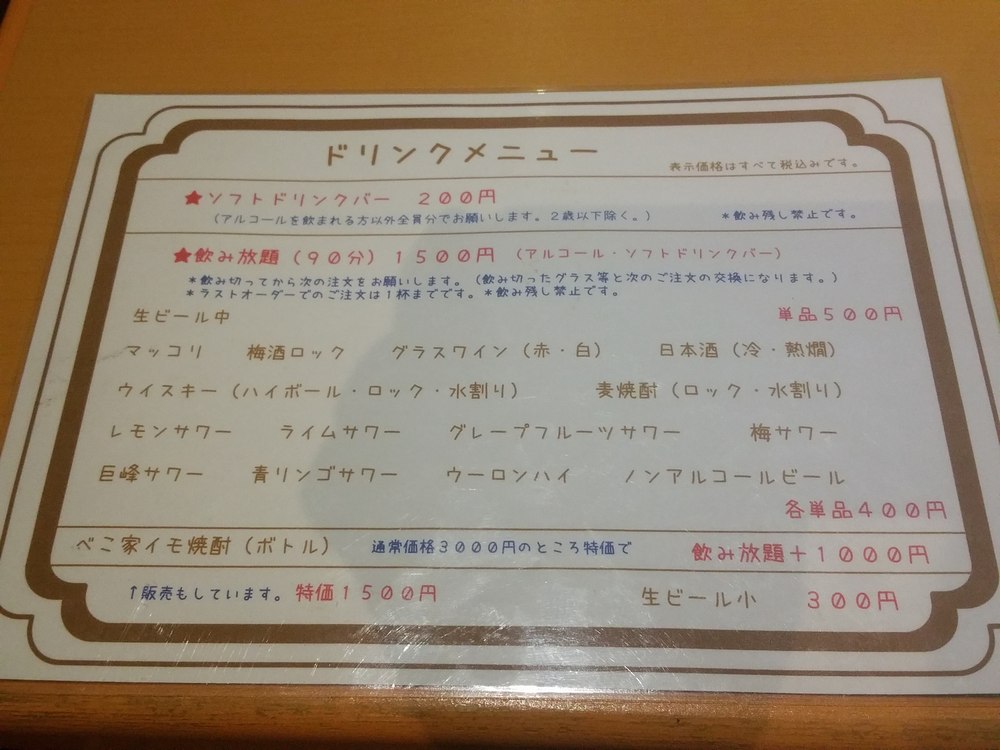 ドリンクメニュー
表示価格はすべて税込みです。
★ソフトドリンクバー　２００円
（アルコールを飲まれる方以外全員分でお願いします。２歳以下除く。）　＊飲み残し禁止です。
★飲み放題（９０分）１５００円（アルコール・ソフトドリンクバー）
＊飲み切ってから次の注文をお願いします。（飲み切ったグラス等と次のご注文の交換になります。）
＊ラストオーダーでのご注文は１杯までです。＊飲み残し禁止です。
生ビール中　単品５００円
マッコリ　梅酒ロック　グラスワイン（赤・白）　日本酒（冷・熱燗）
ウイスキー（ハイボール・ロック・水割り）　麦焼酎（ロック・水割り）
レモンサワー　ライムサワー　グレープフルーツサワー　梅サワー
巨峰サワー　青リンゴサワー　ウーロンハイ　ノンアルコールビール
各単品４００円
べこ家イモ焼酎（ボトル）　通常価格３０００円のところ特価で　飲み放題＋１０００円
↑販売もしています。特価１５００円　生ビール小　３００円